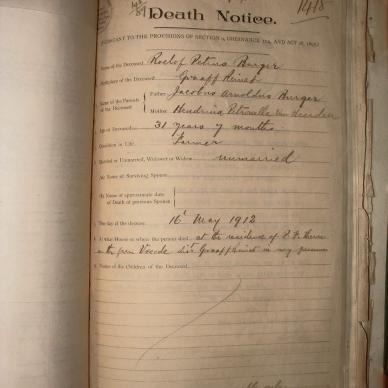 1418
Death Notice.
PURSUANT TO THE PROVISIONS OF SECTION 9, ORDINANCE 104, AND ACT
Name of the Deceased Roelof Petrus Burger
Birthplace of the Deceased Graaff Reinet
Names of the Parents of the Deceased
Father Jacobus Arnoldus Burger
Mother Hendrina Petronella Van Heerden
Age of Deceased 31 years 7 months
Condition in Life Farmer
Married or Unmarried, Widower or Widow unmarried
(a) Name of Surviving Spouse
(b) Name of approximate date of Death of previous Spouse
The day of the decease 16' May 1912
At what House or where the person died at the residence of P. F.
on the farm dist: Graaff Reinet in my presence
Names of the Children of the Deceased